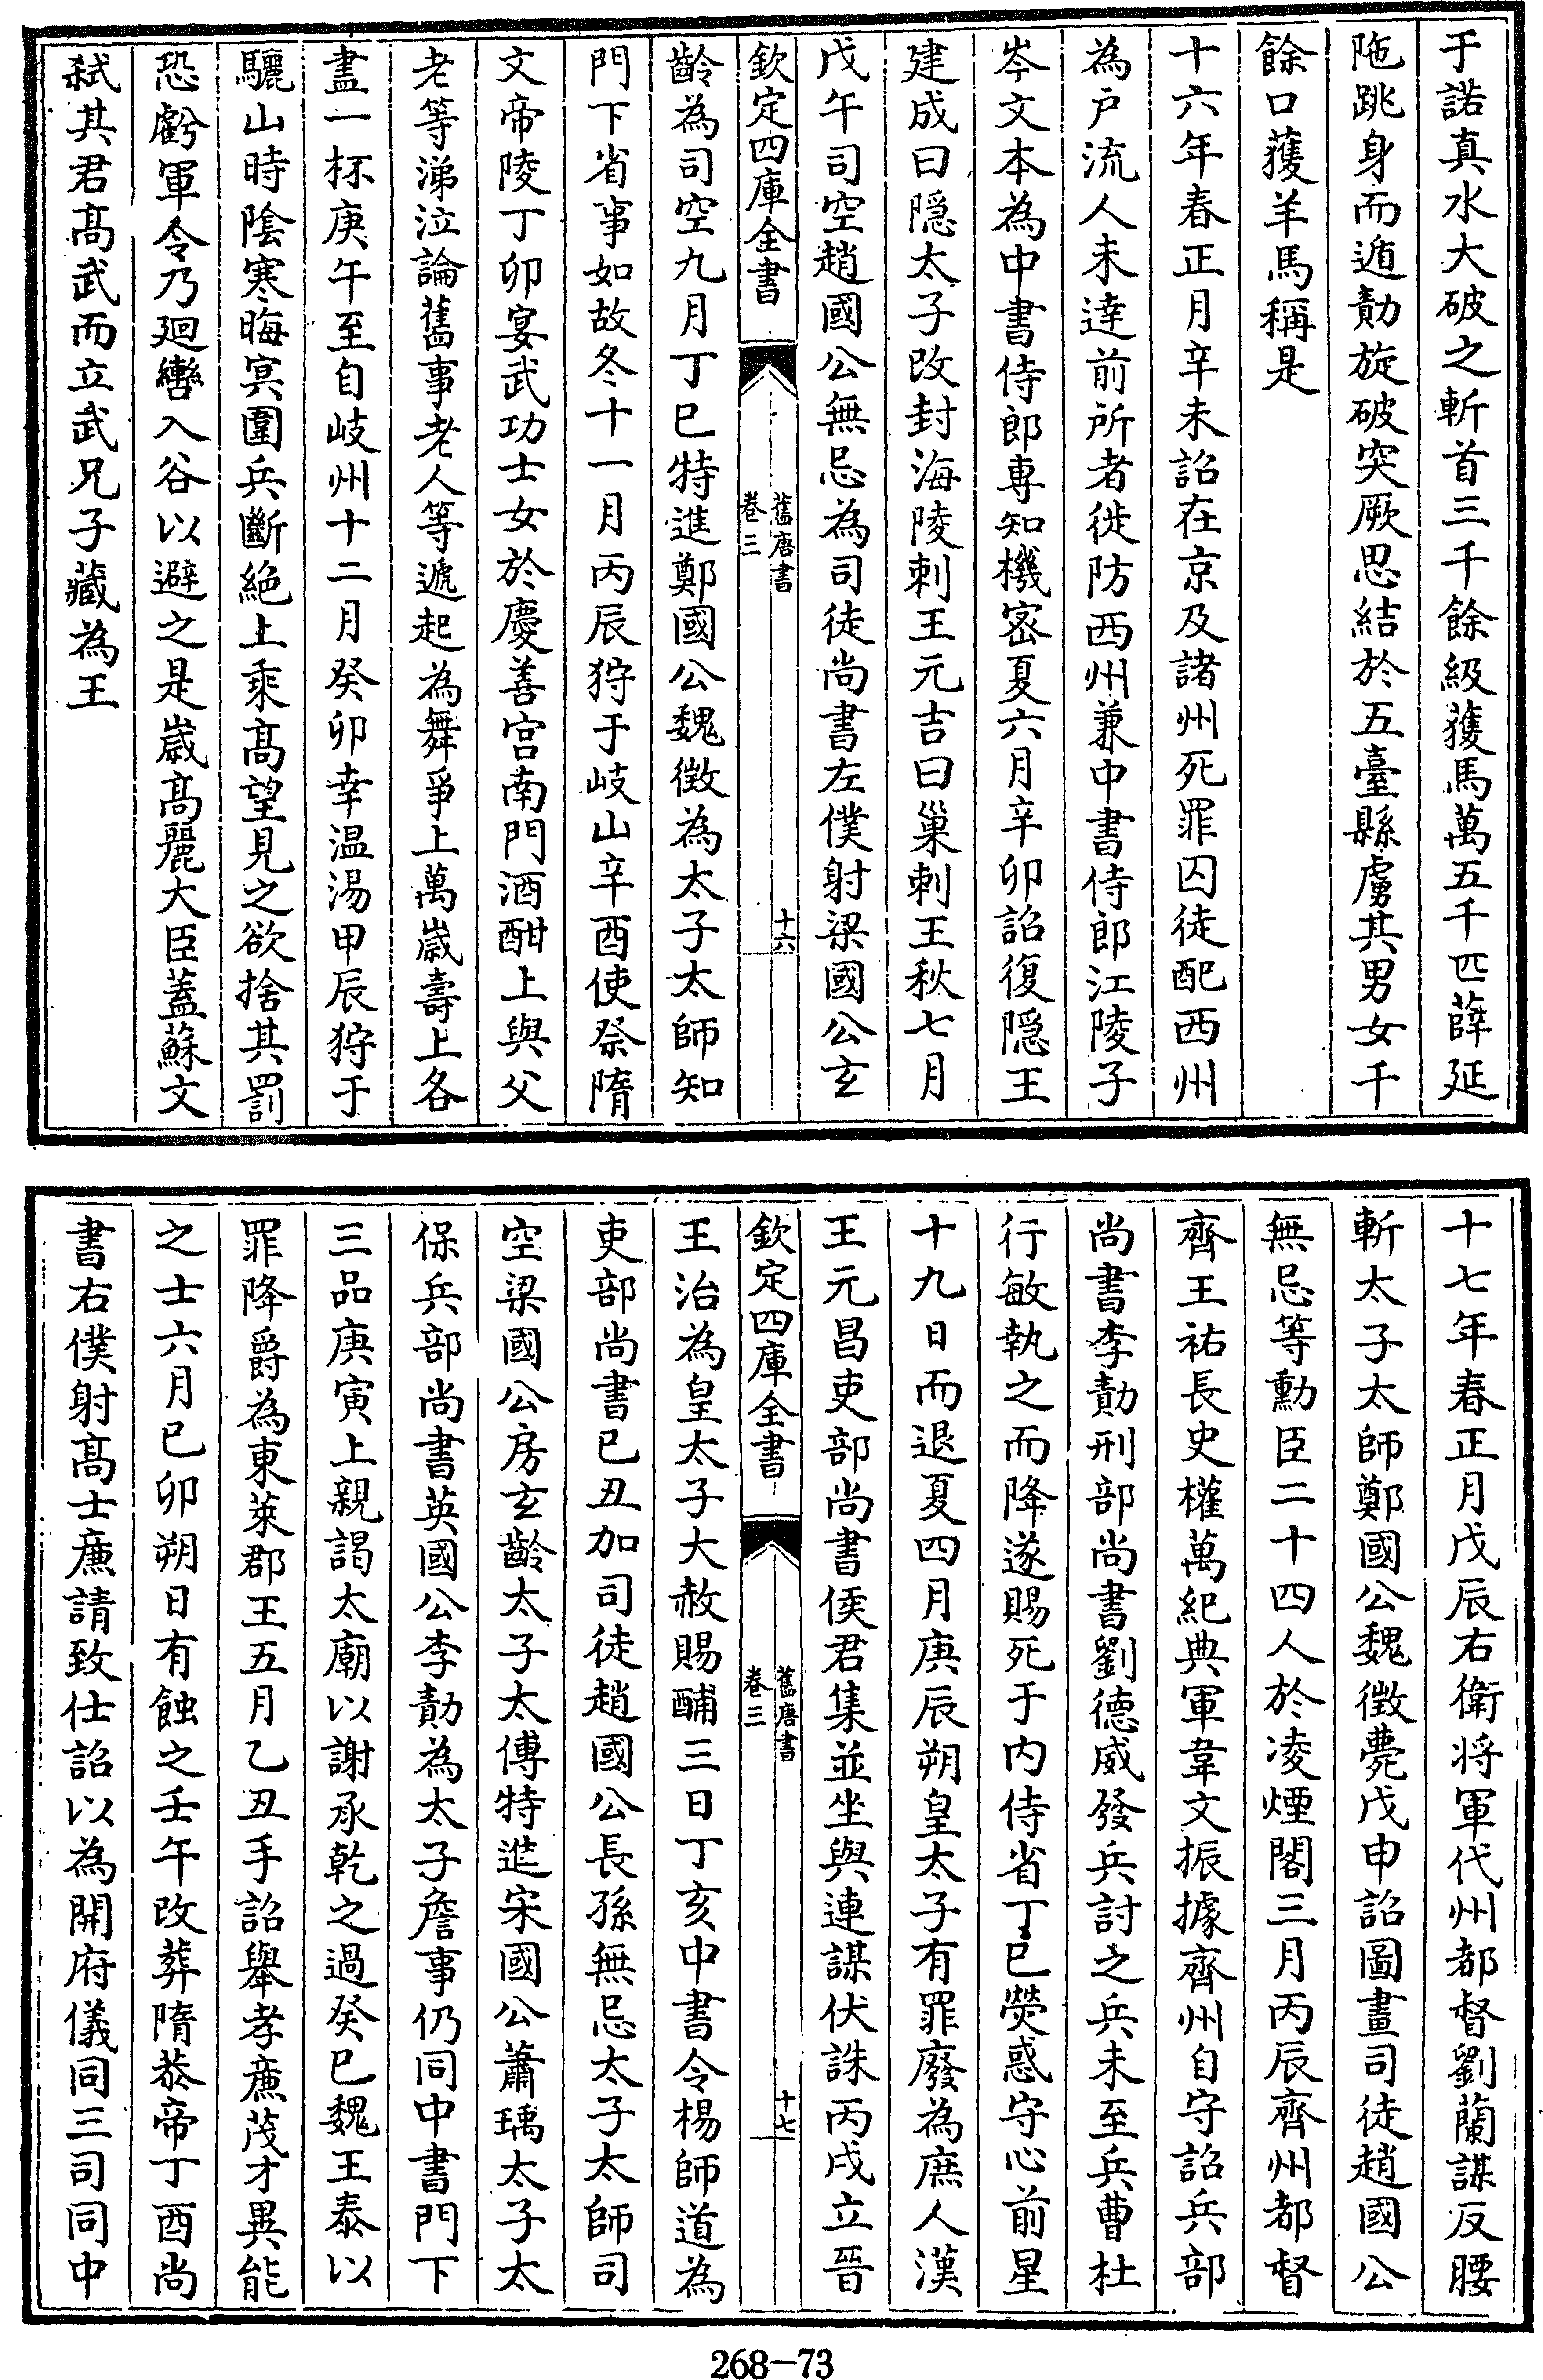 于諾真水大破之斬首三千餘級獲馬萬五千匹薛延
陁跳身而遁勣旋破突厥思結於五臺縣虜其男女千
餘口獲羊馬稱是
十六年春正月辛未詔在京及諸州死罪囚徒配西州
為户流人未逹前所者徙防西州兼中書侍郎江陵子
岑文本為中書侍郎專知機密夏六月辛卯詔復隠王
建成曰隠太子改封海陵刺王元吉曰巢刺王秋七月
戊午司空趙國公無忌為司徒尚書左僕射梁國公玄
欽定四庫全書
舊唐書
卷三
十六
齡為司空九月丁巳特進鄭國公魏徴為太子太師知
門下省事如故冬十一月丙辰狩于岐山辛酉使祭隋
文帝陵丁卯宴武功士女於慶善宮南門酒酣上與父
老等涕泣論舊事老人等遞起為舞爭上萬嵗壽上各
盡一杯庚午至自岐州十二月癸卯幸温湯甲辰狩于
驪山時陰寒晦冥圍兵斷絶上乘髙望見之欲捨其罰
恐虧軍令乃廻轡入谷以避之是嵗髙麗大臣蓋蘇文
弑其君髙武而立武兄子藏為王
十七年春正月戊辰右衛將軍代州都督劉蘭謀反腰
斬太子太師鄭國公魏徴薨戊申詔圖畫司徒趙國公
無忌等勲臣二十四人於凌煙閣三月丙辰齊州都督
齊王祐長史權萬紀典軍韋文振據齊州自守詔兵部
尚書李勣刑部尚書劉德威發兵討之兵未至兵曹杜
行敏執之而降遂賜死于内侍省丁巳熒惑守心前星
十九日而退夏四月庚辰朔皇太子有罪廢為庶人漢
王元昌吏部尚書侯君集並坐與連謀伏誅丙戌立晉
欽定四庫全書
舊唐書
卷三
十七
王治為皇太子大赦賜酺三日丁亥中書令楊師道為
吏部尚書己丑加司徒趙國公長孫無忌太子太師司
空梁國公房玄齡太子太傅特進宋國公蕭瑀太子太
保兵部尚書英國公李勣為太子詹事仍同中書門下
三品庚寅上親謁太廟以謝承乾之過癸巳魏王泰以
罪降爵為東萊郡王五月乙丑手詔舉孝亷茂才異能
之士六月己卯朔日有蝕之壬午改葬隋恭帝丁酉尚
書右僕射髙士亷請致仕詔以為開府儀同三司同中
268-73